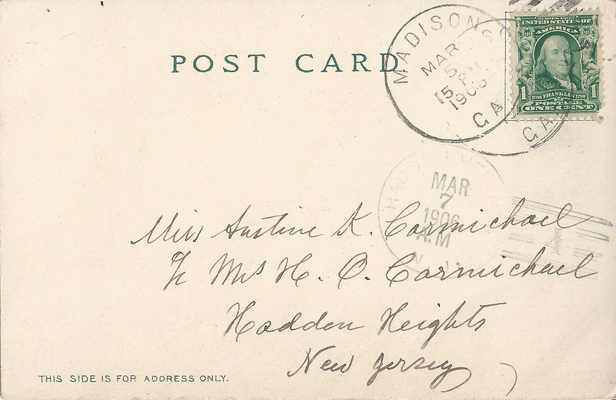 POST CARD
MADISON
MAR
5
PM
1906
GA
GA
UNITED STATES OF
AMERICA
1 FRANKLIN 1
POSTAGE
ONE CENT
HADDON
MAR
7
1906
A.M
N.J.
Miss Justine K. Carmichael
℅ Mrs H. O. Carmichael
Haddon Heights
New Jersey
THIS SIDE IS FOR ADDRESS ONLY.